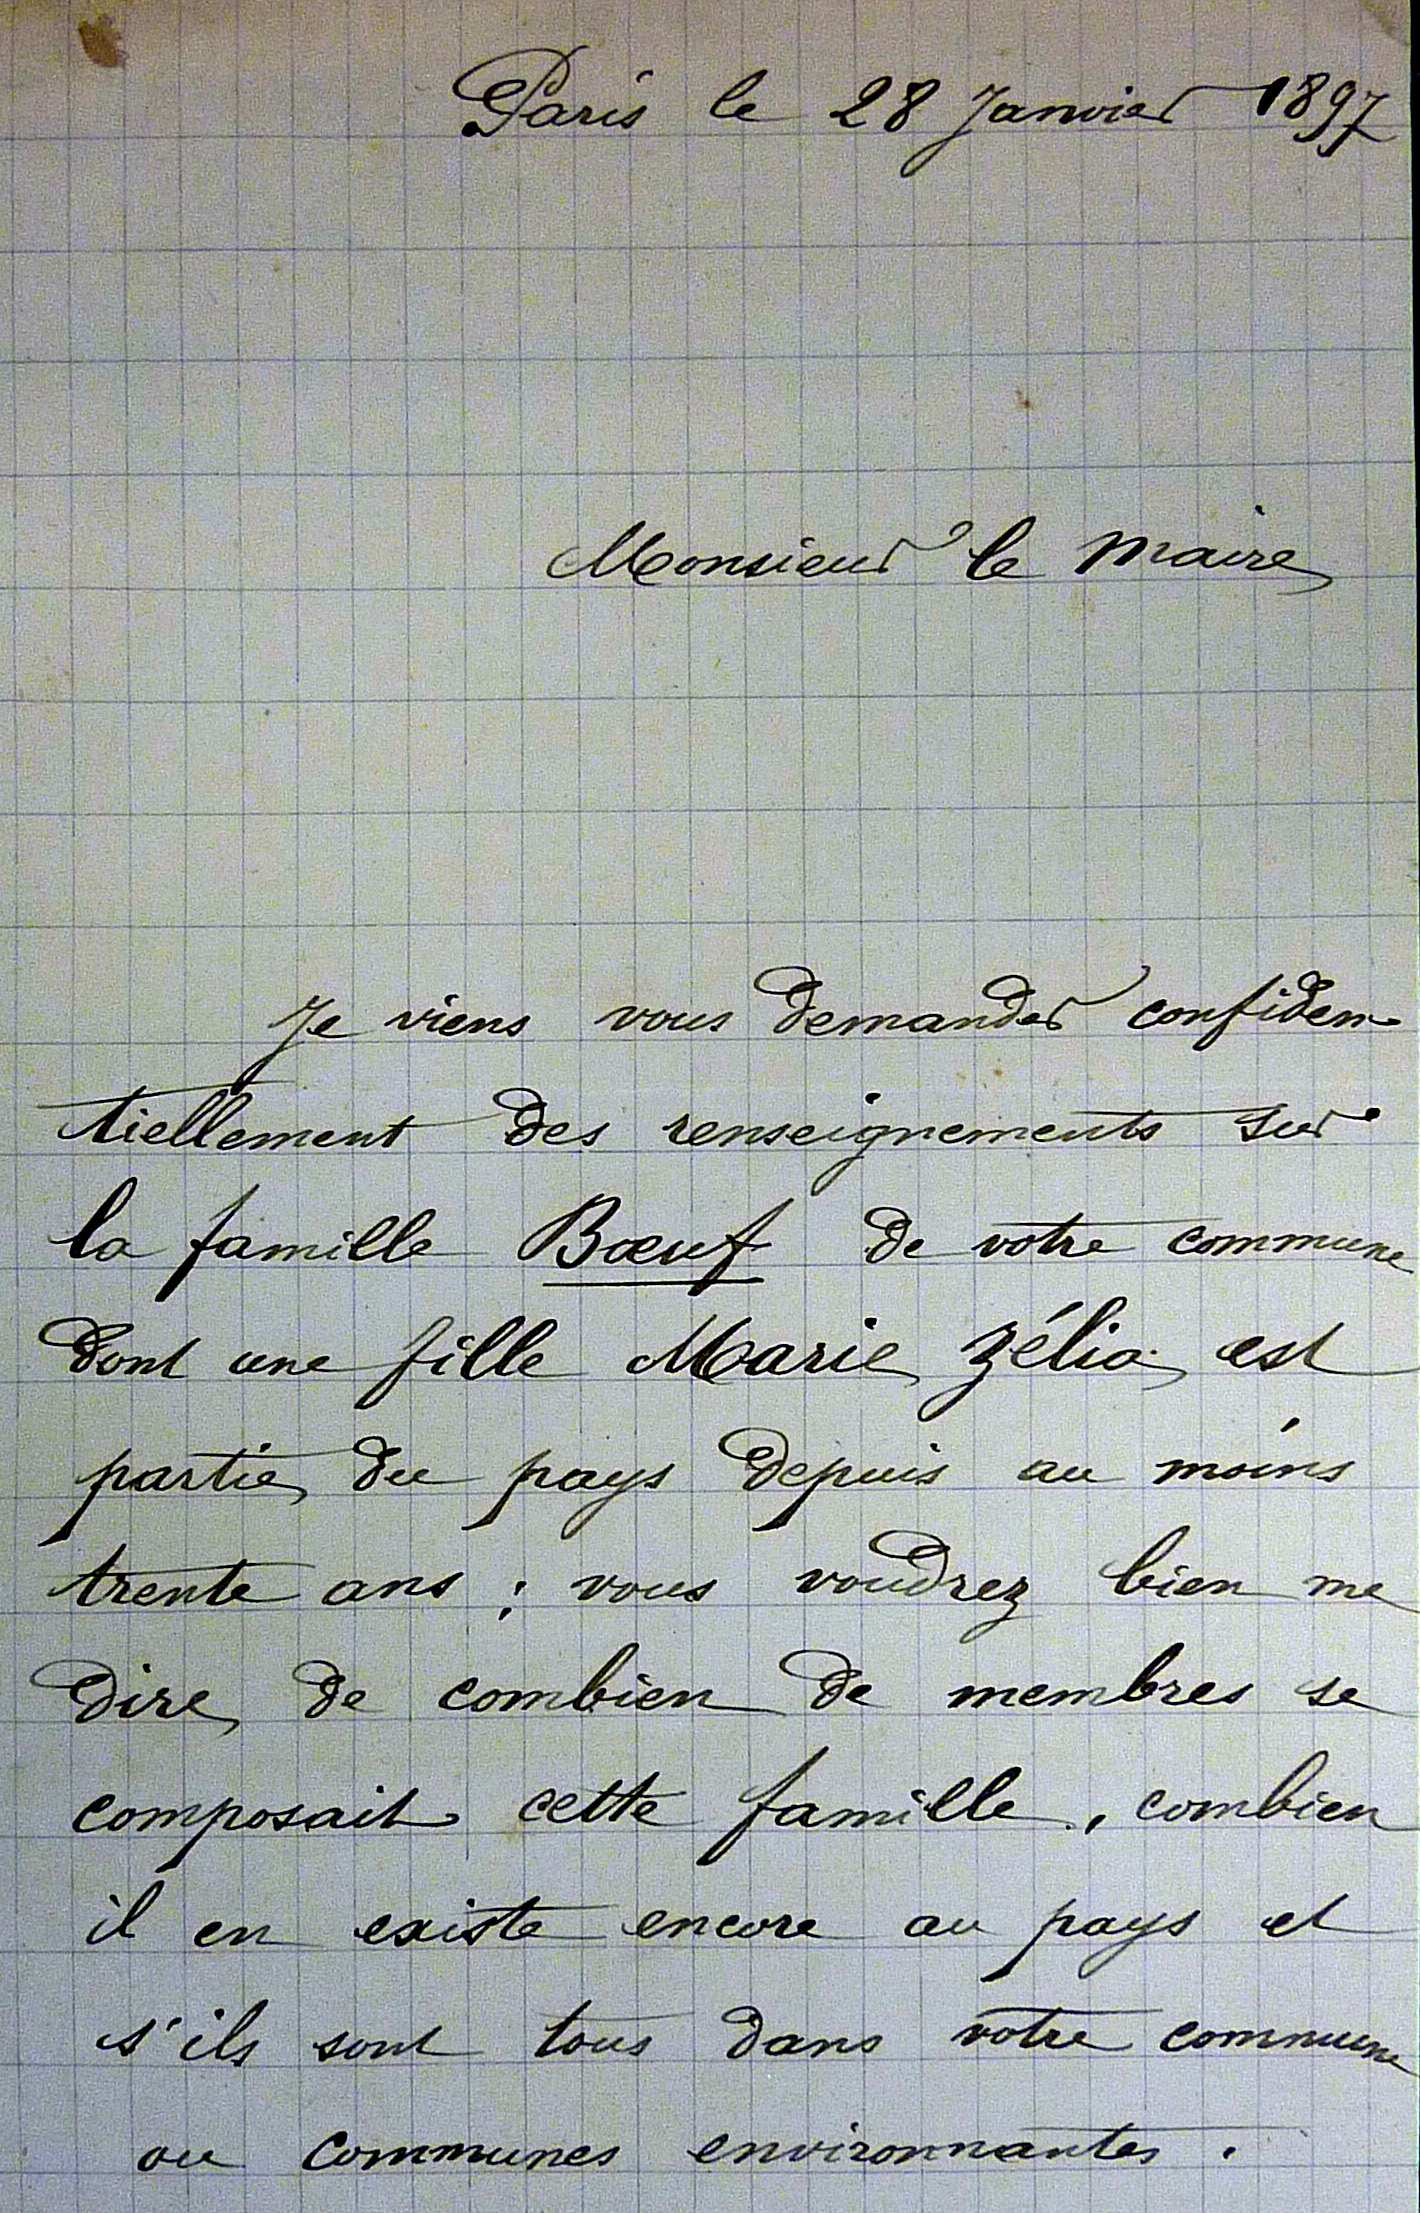 Paris le 28 Janvier 1897
Monsieur le Maire
Je viens vous demander confiden
tiellement des renseignements sur
la famille Bœuf de votre commune
dont une fille Marie Zélia est
partie du pays depuis au moins
trente ans ; vous voudrez bien me
dire de combien de membres se
composait cette famille, combien
il en existe encore au pays et
s'ils sont tous dans votre commune
ou communes environnantes.